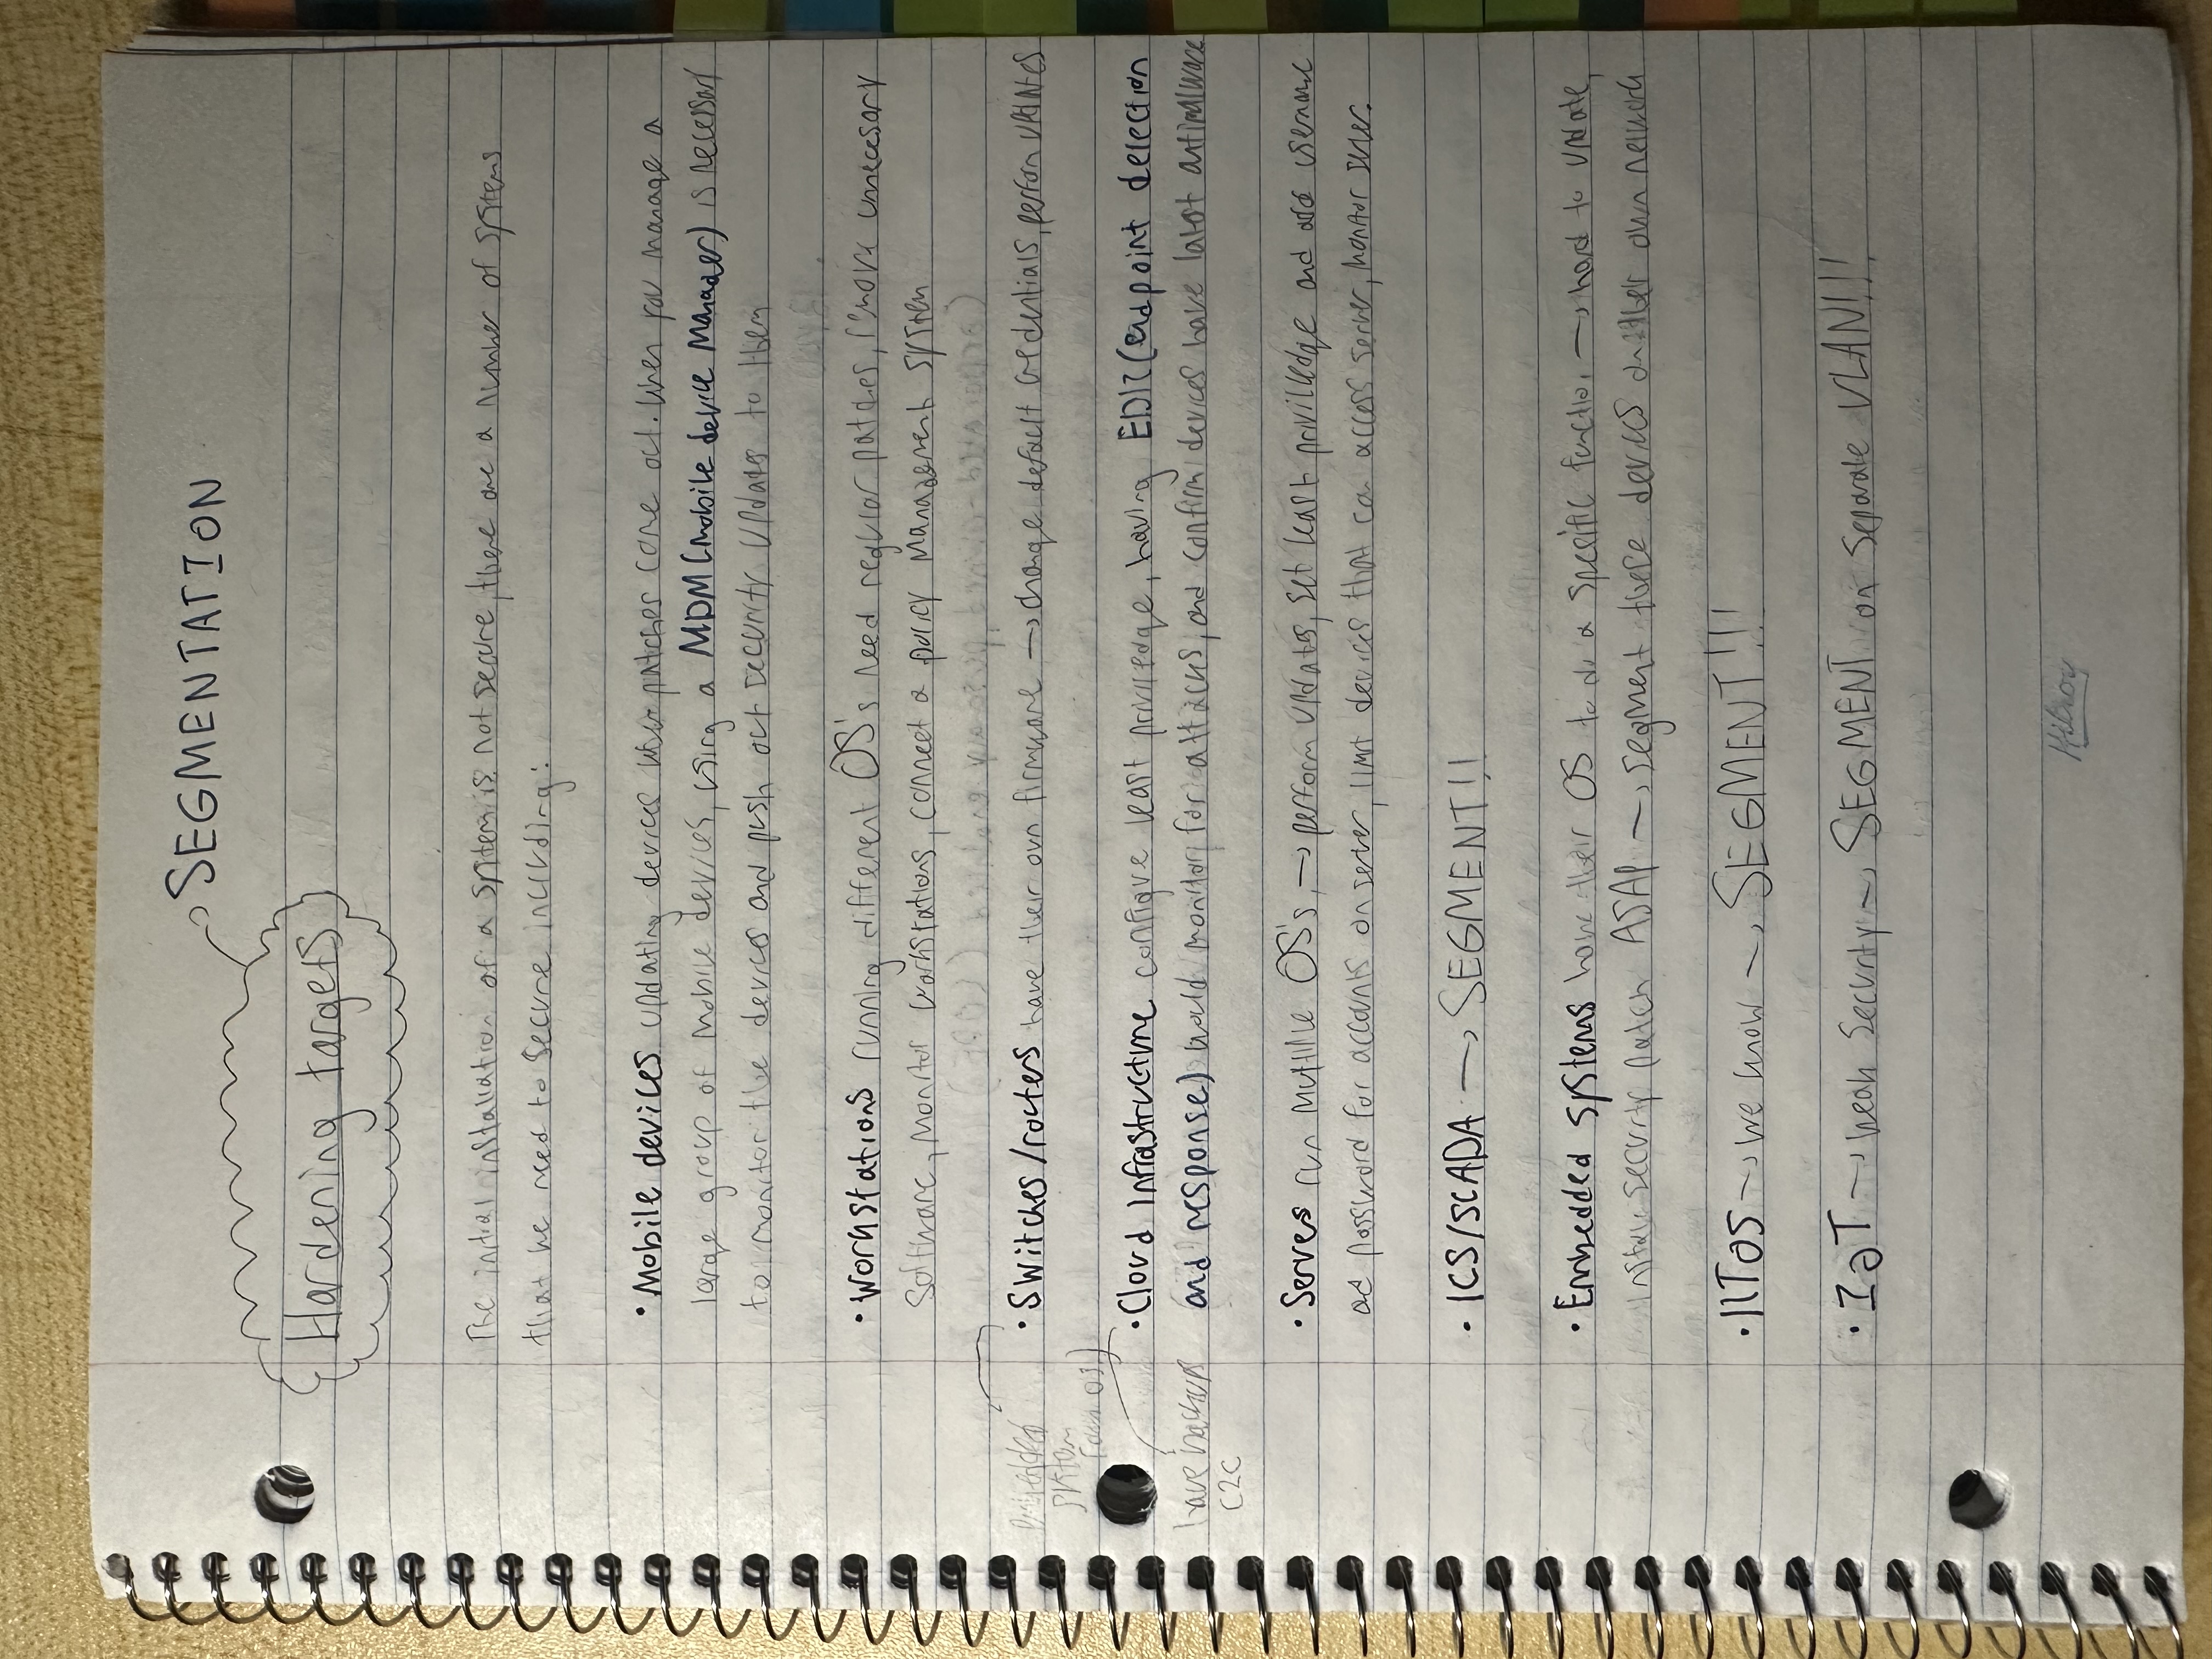 SEGMENTATION
Hardening targets
The initial installation of a system is not secure, there are a number of systems
that we need to secure including:
• Mobile devices updating devices when patches come out. When you manage a
large group of mobile devices, using a MDM (Mobile device Manager) is necessary
to monitor the devices and push out security updates to them
• Workstations running different OS's need regular patches, remove unnecesary
software, monitor workstations, connect a policy management system
• Switches/routers have their own firmware → change default credentials, perform updates
Embedded
system
(own OS)
• Cloud infrastructure configure least priviledge, having EDR (endpoint detection
and response) would monitor for attacks, and confirm devices have latest antimalware
have backups
C2C
• Serves run multiple OS's, → perform updates, set least priviledge and add username
ad password for accounts on server, limit devices that can access server, monitor server.
• ICS/SCADA → SEGMENT!!
• Embedded systems have their OS to do a specific function → hard to update,
install security patch ASAP → segment these devices on their own network
• RTOS → we know → SEGMENT!!!
• IoT → weak security → SEGMENT on separate VLAN!!!
Hilroy